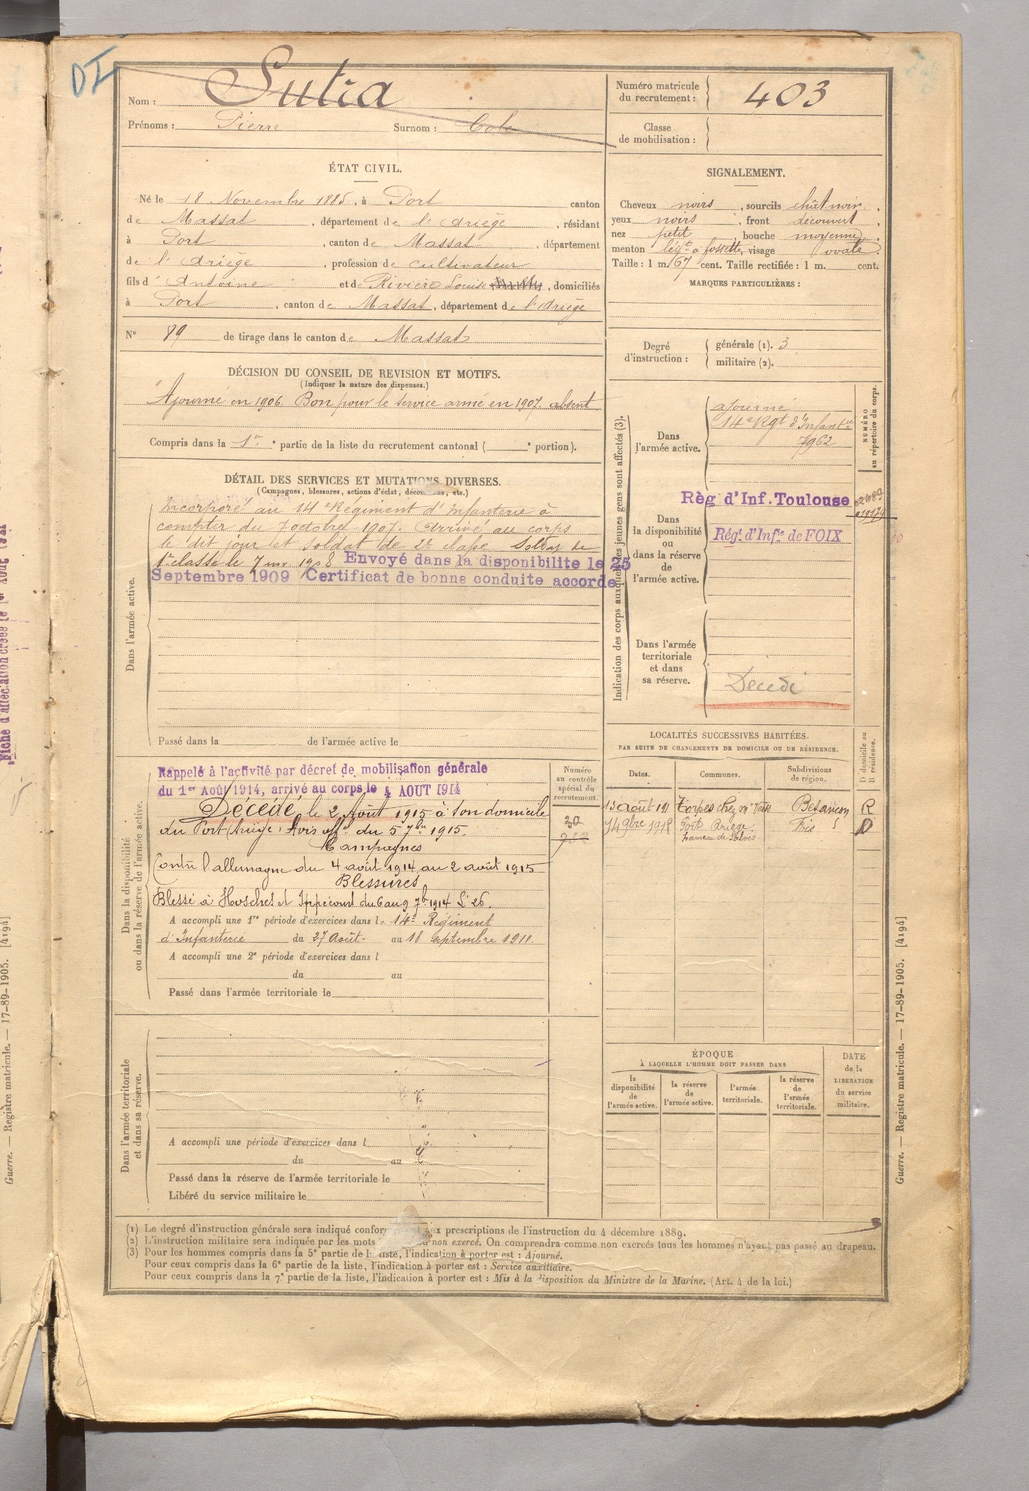 DI
Nom : Sutra
Prénoms : Pierre Surnom :
Numéro matricule du recrutement : 403
Classe de mobilisation :
ÉTAT CIVIL.
Né le 18 Novembre 1885, à Port canton
de Massat, département de l'Ariège, résidant
à Port, canton de Massat, département
de l'Ariège, profession de cultivateur
fils d'Antoine et de Rivière Louise, domiciliés
à Port, canton de Massat, département de l'Ariège
N° 89 de tirage dans le canton de Massat
SIGNALEMENT.
Cheveux noirs, sourcils chât noir,
yeux noirs, front découvert,
nez petit, bouche moyenne,
menton lég.t à fossette, visage ovale.
Taille : 1 m. 67 cent. Taille rectifiée : 1 m. cent.
MARQUES PARTICULIÈRES :
Degré d'instruction : générale (1). 3
militaire (2).
DÉCISION DU CONSEIL DE REVISION ET MOTIFS.
(Indiquer la nature des dispenses.)
Ajourné en 1906. Bon pour le service armé en 1907. absent
Compris dans la 1re partie de la liste du recrutement cantonal ( portion).
DÉTAIL DES SERVICES ET MUTATIONS DIVERSES.
(Campagnes, blessures, actions d'éclat, décorations, etc.)
Dans l'armée active.
Incorporé au 14e Régiment d'Infanterie à
compter du 7 octobre 1907. Arrivé au corps
le dit jour et soldat de 2e classe. Soldat de
1re classe le 7 1908 Envoyé dans la disponibilite le 25
Septembre 1909 Certificat de bonne conduite accordé
Passé dans la de l'armée active le
Indication des corps auxquels les jeunes gens sont affectés (3).
NUMÉRO au répertoire du corps.
Dans l'armée active.
ajourné
14e Rgt d'Infanterie
7962
Dans la disponibilité ou dans la réserve de l'armée active.
Règ d'Inf. Toulouse
Régt d'Infie de FOIX
Dans l'armée territoriale et dans sa réserve.
Décédé
Dans la disponibilité ou dans la réserve de l'armée active.
Numéro au contrôle spécial du recrutement.
Rappelé à l'activité par décret de mobilisation générale
du 1er Août 1914, arrivé au corps le 4 AOUT 1914
Décédé le 2 Août 1915 à son domicile
du Port Ariège. Avis off. du 5 7bre 1915.
Campagnes
Contre l'allemagne du 4 août 1914 au 2 août 1915
Blessures
A accompli une 1re période d'exercices dans le 14e Régiment
d'Infanterie du 27 Août au 18 septembre 1911.
A accompli une 2e période d'exercices dans l
du au
Passé dans l'armée territoriale le
LOCALITÉS SUCCESSIVES HABITÉES.
PAR SUITE DE CHANGEMENTS DE DOMICILE OU DE RÉSIDENCE.
Dates. Communes. Subdivisions de région. D domicile ou R résidence.
13 août 191 Torpes chez Besançon R
Port Ariège D
Dans l'armée territoriale et dans sa réserve.
A accompli une période d'exercices dans l
du au
Passé dans la réserve de l'armée territoriale le
Libéré du service militaire le
ÉPOQUE
À LAQUELLE L'HOMME DOIT PASSER DANS
la disponibilité de l'armée active. la réserve de l'armée active. l'armée territoriale. la réserve de l'armée territoriale.
DATE de la LIBÉRATION du service militaire.
(1) Le degré d'instruction générale sera indiqué aux prescriptions de l'instruction du 4 décembre 1889.
(2) L'instruction militaire sera indiquée par les mots ou non exercé. On comprendra comme non exercés tous les hommes n'ayant pas passé au drapeau.
(3) Pour les hommes compris dans la 5e partie de la liste, l'indication à porter est : Ajourné.
Pour ceux compris dans la 6e partie de la liste, l'indication à porter est : Service auxiliaire.
Pour ceux compris dans la 7e partie de la liste, l'indication à porter est : Mis à la disposition du Ministre de la Marine. (Art. 4 de la loi.)
Guerre. — Registre matricule. — 17-89-1905. [4194]
Guerre. — Registre matricule. — 17-89-1905. [4194]